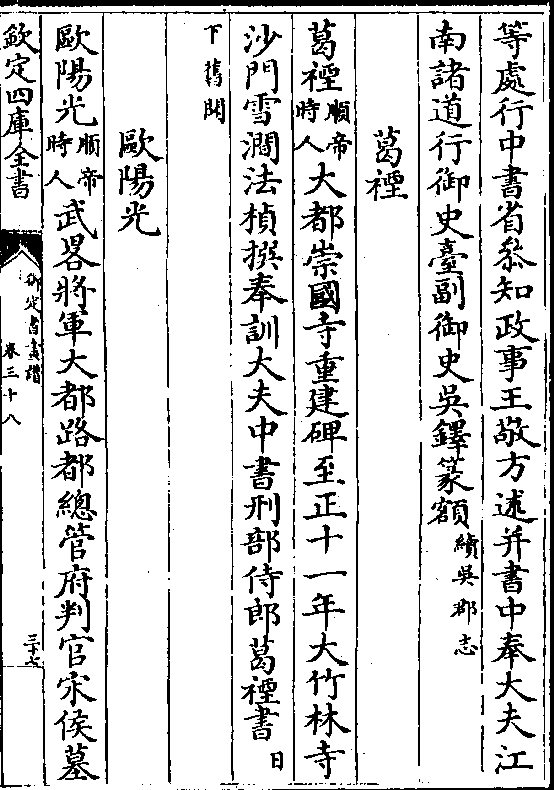 等處行中書省叅知政事王敬方述并書中奉大夫江
南諸道行御史臺副御史吳鐸篆額續吳郡志
葛禋
葛禋順帝時人大都崇國寺重建碑至正十一年大竹林寺
沙門雪澗法楨撰奉訓大夫中書刑部侍郎葛禋書日
下舊聞
歐陽光
歐陽光順帝時人武畧將軍大都路都總管府判官宋侯墓
欽定四庫全書
御定書畫譜
卷三十八
三十七